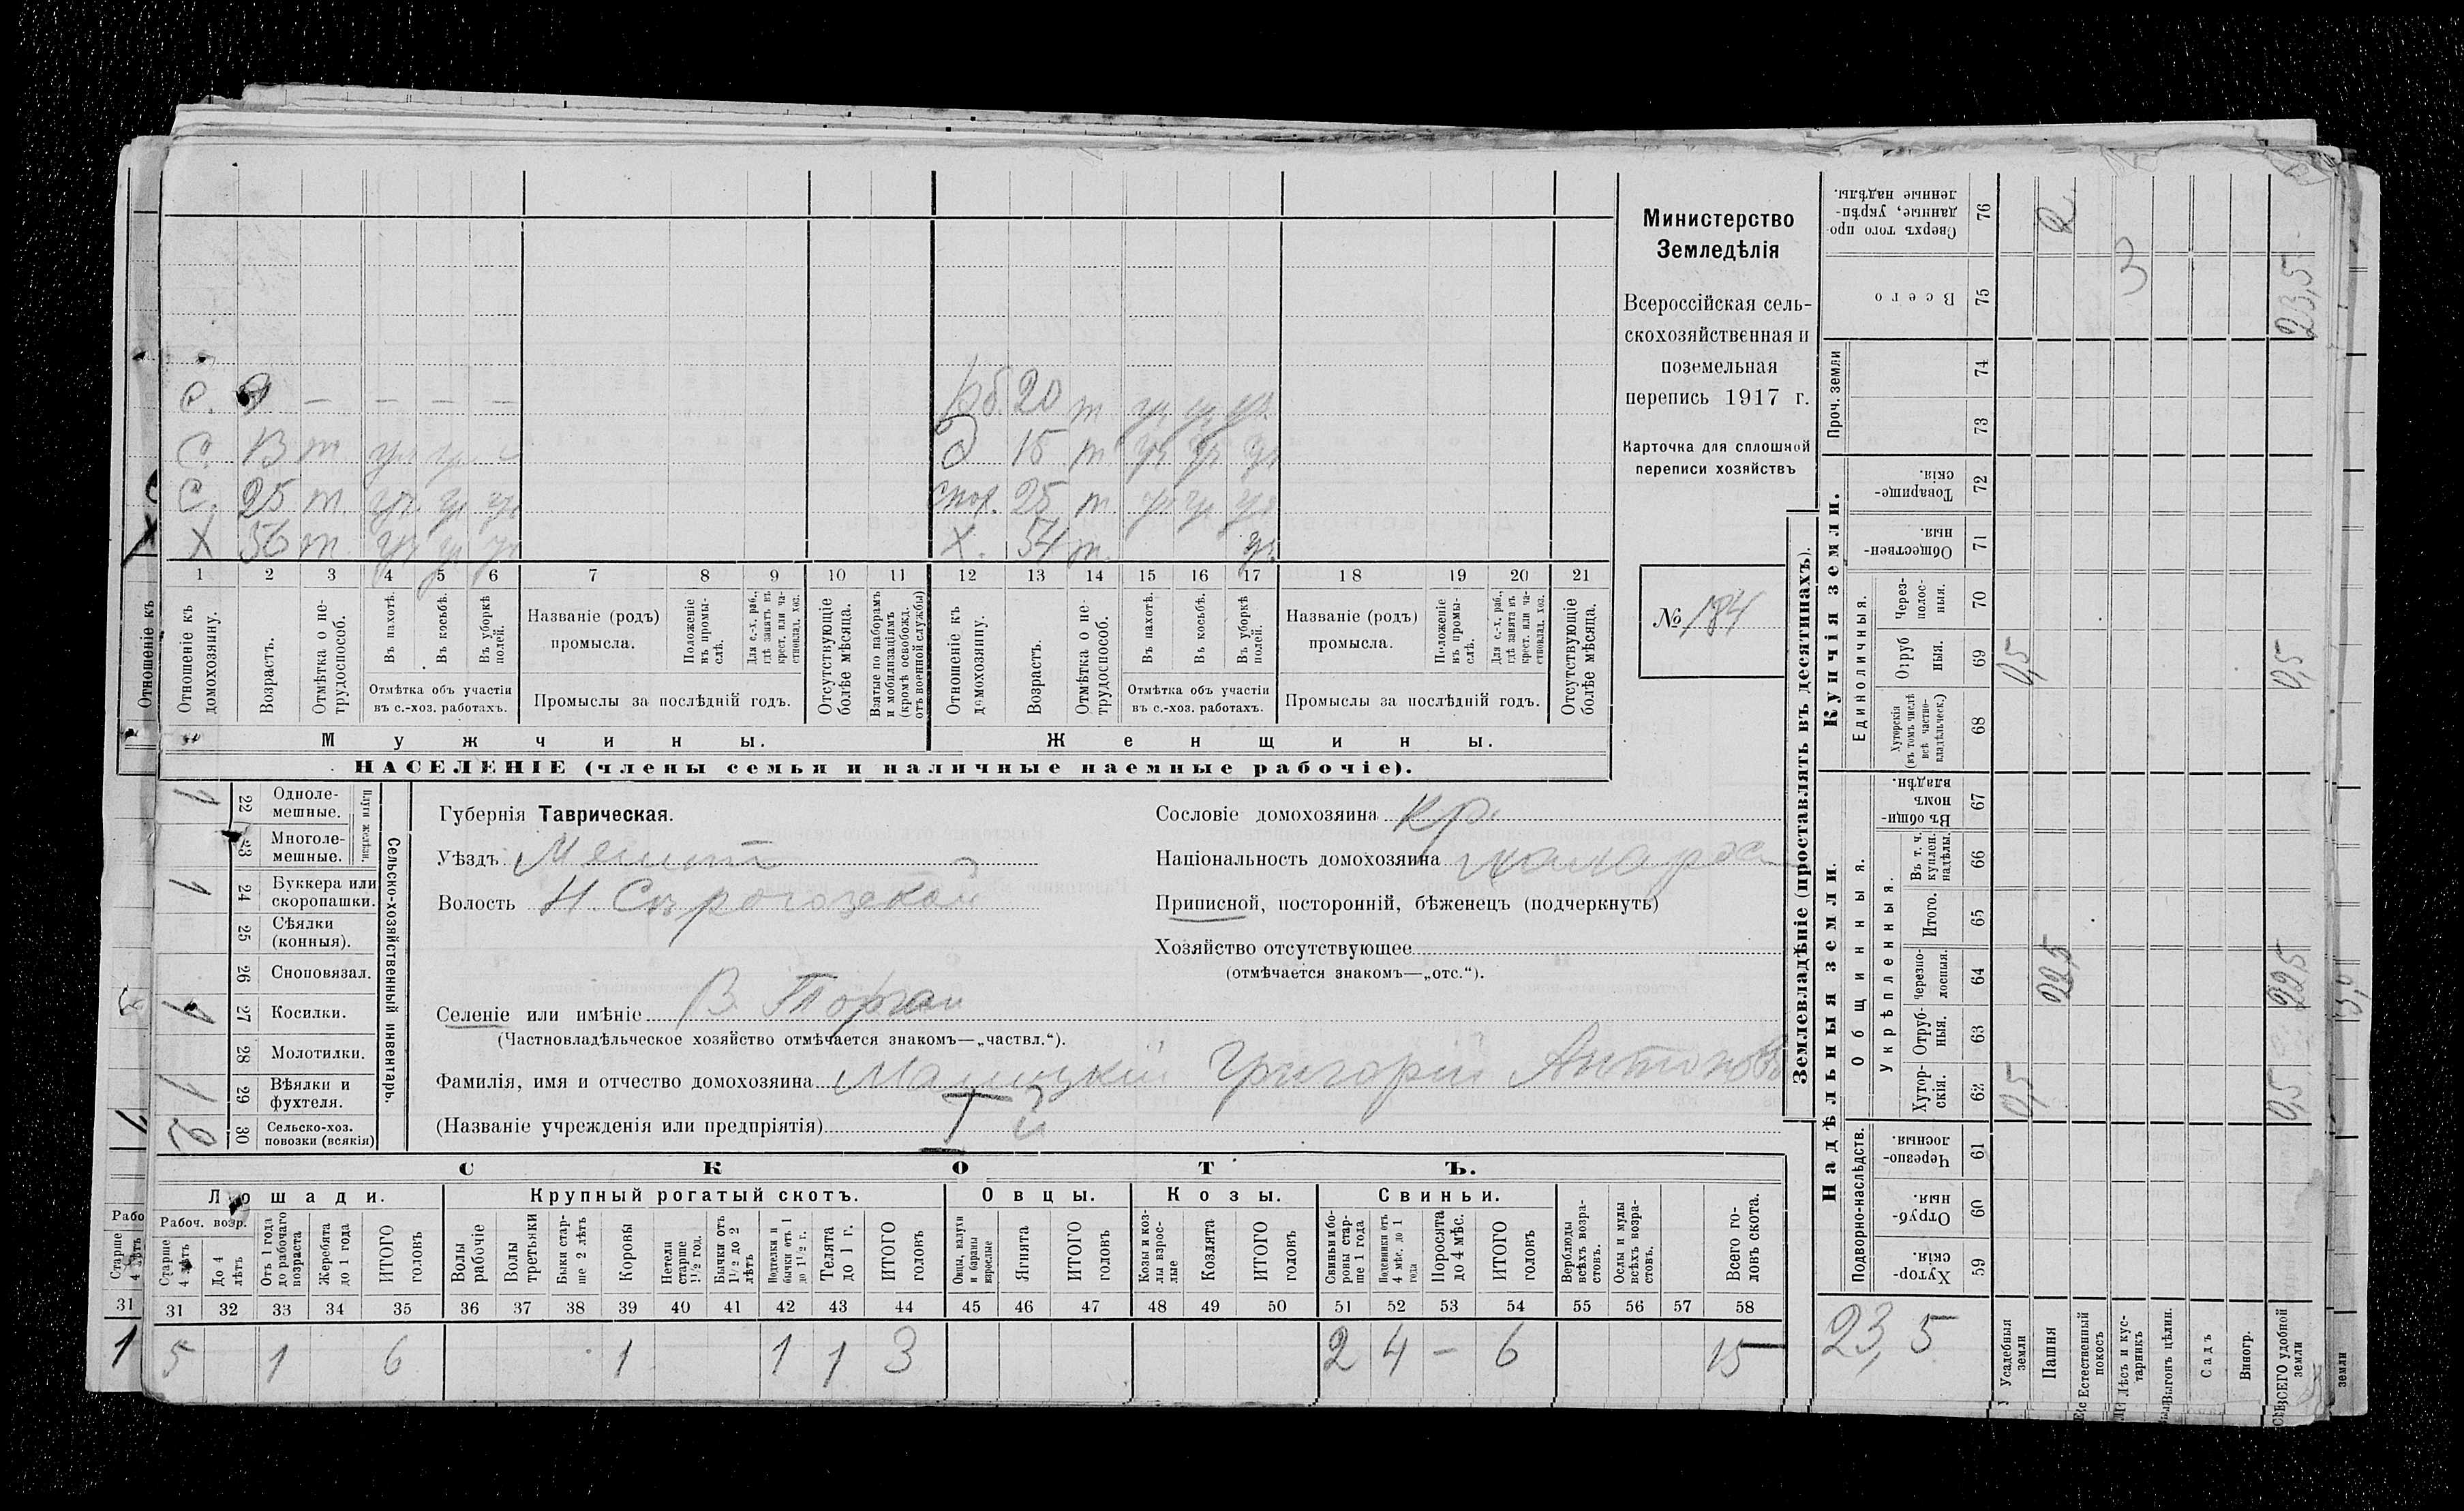 Министерство
Земледѣлія
Всероссійская сель-
скохозяйственная и
поземельная
перепись 1917 г.
Карточка для сплошной
переписи хозяйствъ
№ 184
с. – – – – –
С. 13 т
С. 25 т.
Х 56 т
20 т
д 15 т
25 т
Х. 54 т.
1 2 3 4 5 6 7 8 9 10 11 12 13 14 15 16 17 18 19 20 21
Отношеніе къ домохозяину.
Возрастъ.
Отмѣтка о не-трудоспособ.
Въ пахотѣ.
Въ косьбѣ.
Въ уборкѣ полей.
Отмѣтка объ участіи въ с.-хоз. работахъ.
Названіе (родъ) промысла.
Положеніе въ промы-слѣ.
Для с.-х. раб., гдѣ занятъ въ крест. или ча-стновлад. хоз.
Промыслы за послѣдній годъ.
Отсутствующіе болѣе мѣсяца.
Взятые по наборамъ и мобилизаціямъ (кромѣ освобожд. отъ военной службы)
Отношеніе къ домохозяину.
Возрастъ.
Отмѣтка о не-трудоспособ.
Въ пахотѣ.
Въ косьбѣ.
Въ уборкѣ полей.
Отмѣтка объ участіи въ с.-хоз. работахъ.
Названіе (родъ) промысла.
Положеніе въ промы-слѣ.
Для с.-х. раб., гдѣ занята въ крест. или ча-стновлад. хоз.
Промыслы за послѣдній годъ.
Отсутствующіе болѣе мѣсяца.
Мужчины. Женщины.
НАСЕЛЕНІЕ (члены семьи и наличные наемные рабочіе).
Сельско-хозяйственный инвентарь.
Плуги желѣзн.
1 22 Одноле-мешные.
23 Многоле-мешные.
1 24 Буккера или скоропашки.
25 Сѣялки (конныя).
26 Сноповязал.
1 27 Косилки.
28 Молотилки.
1 29 Вѣялки и фухтеля.
2 30 Сельско-хоз. повозки (всякія)
Губернія Таврическая.
Уѣздъ Мелит
Волость Н. Сѣрогозской
Селеніе или имѣніе В. Торгаи
(Частновладѣльческое хозяйство отмѣчается знакомъ—„частвл.“).
Фамилія, имя и отчество домохозяина Григорій Антоновъ
(Названіе учрежденія или предпріятія)
Сословіе домохозяина кр.
Національность домохозяина малорос
Приписной, посторонній, бѣженецъ (подчеркнуть)
Хозяйство отсутствующее
(отмѣчается знакомъ—„отс.“).
СКОТЪ.
Лошади. Крупный рогатый скотъ. Овцы. Козы. Свиньи.
Рабоч. возр.
Старше 4 лѣтъ
До 4 лѣтъ
Отъ 1 года до рабочаго возраста
Жеребята до 1 года
ИТОГО головъ
Волы рабочіе
Волы третьяки
Быки стар-ше 2 лѣтъ
Коровы
Нетели старше 1½ год.
Бычки отъ 1½ до 2 лѣтъ
Подтелки и бычки отъ 1 до 1½ г.
Телята до 1 г.
ИТОГО головъ
Овцы, валухи и бараны взрослые
Ягнята
ИТОГО головъ
Козы и коз-лы взрос-лые
Козлята
ИТОГО головъ
Свиньи и бо-ровы стар-ше 1 года
Подсвинки отъ 4 мѣс. до 1 года
Поросята до 4 мѣс.
ИТОГО головъ
Верблюды всѣхъ возра-стовъ.
Ослы и мулы всѣхъ возра-стовъ.
Всего го-ловъ скота.
31 32 33 34 35 36 37 38 39 40 41 42 43 44 45 46 47 48 49 50 51 52 53 54 55 56 57 58
5 1 6 1 1 1 3 2 4 – 6 15
Землевладѣніе (проставлять въ десятинахъ).
Надѣльныя земли. Купчія земли.
Подворно-наслѣдств.
Общинныя.
Укрѣпленныя.
Единоличныя.
Проч. земли
59 Хутор-скія.
60 Отруб-ныя.
61 Черезпо-лосныя.
62 Хутор-скія.
63 Отруб-ныя.
64 Черезпо-лосныя.
65 Итого.
66 Въ т. ч. куплен. надѣлы.
67 Въ общи-номъ владѣн.
68 Хуторскія (въ томъ числѣ всѣ частно-владѣльческ.)
69 Отруб ныя.
70 Через-полос-ныя.
71 Обществен-ныя.
72 Товарище-скія.
73
74
75 Всего
76 Сверхъ того про-данные, укрѣп-ленные надѣлы.
23,5
Усадебныя земли 0,5 0,5
Пашня 22,5 2
Естественный покосъ
Лѣсъ и кус-тарникъ 3
Выгонъ цѣлин.
Садъ
Виногр.
ВСЕГО удобной земли 0,5 22,5 0,5 23,5
Отношеніе къ
Рабо
Старше 4 лѣтъ
31
1
земли